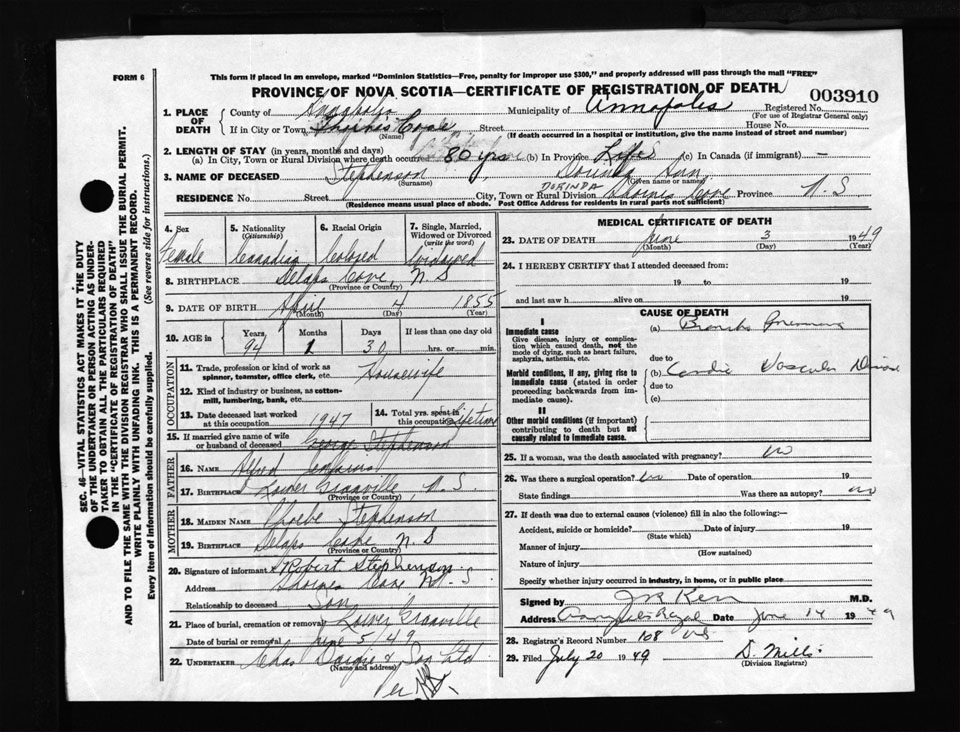 FORM 6
This form if placed in an envelope, marked "Dominion Statistics—Free, penalty for improper use $300," and properly addressed will pass through the mail "FREE"
PROVINCE OF NOVA SCOTIA—CERTIFICATE OF REGISTRATION OF DEATH
003910
1. PLACE OF DEATH
County of Annapolis Municipality of Annapolis Registered No.
(For use of Registrar General only)
If in City or Town Thornes Cove Street House No.
(Name) (If death occurred in a hospital or institution, give the name instead of street and number)
2. LENGTH OF STAY (in years, months and days)
(a) In City, Town or Rural Division where death occurred 80 yrs (b) In Province Life (c) In Canada (if immigrant) —
3. NAME OF DECEASED Stephenson, Dorinda Ann
(Surname) (Given name or names)
DORINDA
RESIDENCE No. Street City, Town or Rural Division Thornes Cove Province N. S
(Residence means usual place of abode. Post Office Address for residents in rural parts not sufficient)
4. Sex Female
5. Nationality (Citizenship) Canadian
6. Racial Origin Colored
7. Single, Married, Widowed or Divorced (write the word) Widowed
8. BIRTHPLACE Delaps Cove, N S
(Province or Country)
9. DATE OF BIRTH April 4 1855
(Month) (Day) (Year)
10. AGE in Years 94 Months 1 Days 30 If less than one day old hrs. or min.
OCCUPATION
11. Trade, profession or kind of work as spinner, teamster, office clerk, etc. Housewife
12. Kind of industry or business, as cotton-mill, lumbering, bank, etc.
13. Date deceased last worked at this occupation 1947
14. Total yrs. spent in this occupation Lifetime
15. If married give name of wife or husband of deceased George Stephenson
FATHER
16. NAME Alfred
17. BIRTHPLACE Lower Granville, N. S.
(Province or Country)
MOTHER
18. MAIDEN NAME Phoebe Stephenson
19. BIRTHPLACE Delaps Cove N. S
(Province or Country)
20. Signature of informant Robert Stephenson
Address Thornes Cove N. S.
Relationship to deceased Son
21. Place of burial, cremation or removal Lower Granville
Date of burial or removal June 5 49
22. UNDERTAKER Chas & Son Ltd
(Name and address)
Per
MEDICAL CERTIFICATE OF DEATH
23. DATE OF DEATH June 3 1949
(Month) (Day) (Year)
24. I HEREBY CERTIFY that I attended deceased from:
19 to 19
and last saw h alive on 19
CAUSE OF DEATH
I
Immediate cause
Give disease, injury or complication which caused death, not the mode of dying, such as heart failure, asphyxia, asthenia, etc.
(a) Broncho Pneumonia
due to
Morbid conditions, if any, giving rise to immediate cause (stated in order proceeding backwards from immediate cause).
(b) Cardio Vascular Disease
due to
(c)
II
Other morbid conditions (if important) contributing to death but not causally related to immediate cause.
25. If a woman, was the death associated with pregnancy? no
26. Was there a surgical operation? no Date of operation 19
State findings Was there an autopsy? no
27. If death was due to external causes (violence) fill in also the following:—
Accident, suicide or homicide? Date of injury 19
(State which)
Manner of injury
(How sustained)
Nature of injury
Specify whether injury occurred in industry, in home, or in public place
Signed by J R Kerr M.D.
Address Annapolis Royal Date June 14 1949
28. Registrar's Record Number 108
29. Filed July 20 1949 D. Mills
(Division Registrar)
SEC. 46—VITAL STATISTICS ACT MAKES IT THE DUTY
OF THE UNDERTAKER OR PERSON ACTING AS UNDERTAKER
TO OBTAIN ALL THE PARTICULARS REQUIRED
IN THE "CERTIFICATE OF REGISTRATION OF DEATH"
AND TO FILE THE SAME WITH THE DIVISION REGISTRAR WHO SHALL ISSUE THE BURIAL PERMIT.
WRITE PLAINLY WITH UNFADING INK. THIS IS A PERMANENT RECORD.
Every item of information should be carefully supplied. (See reverse side for instructions.)